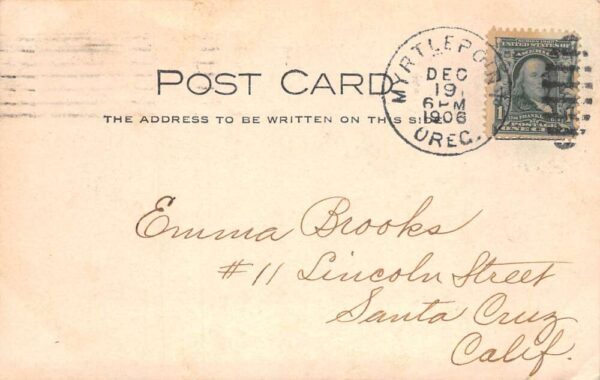 POST CARD
THE ADDRESS TO BE WRITTEN ON THIS SIDE
MYRTLEPOINT
DEC
19
6 PM
1906
OREG.
UNITED STATES OF AMERICA
FRANKLIN
POSTAGE
ONE CENT
Emma Brooks
#11 Lincoln Street
Santa Cruz
Calif.